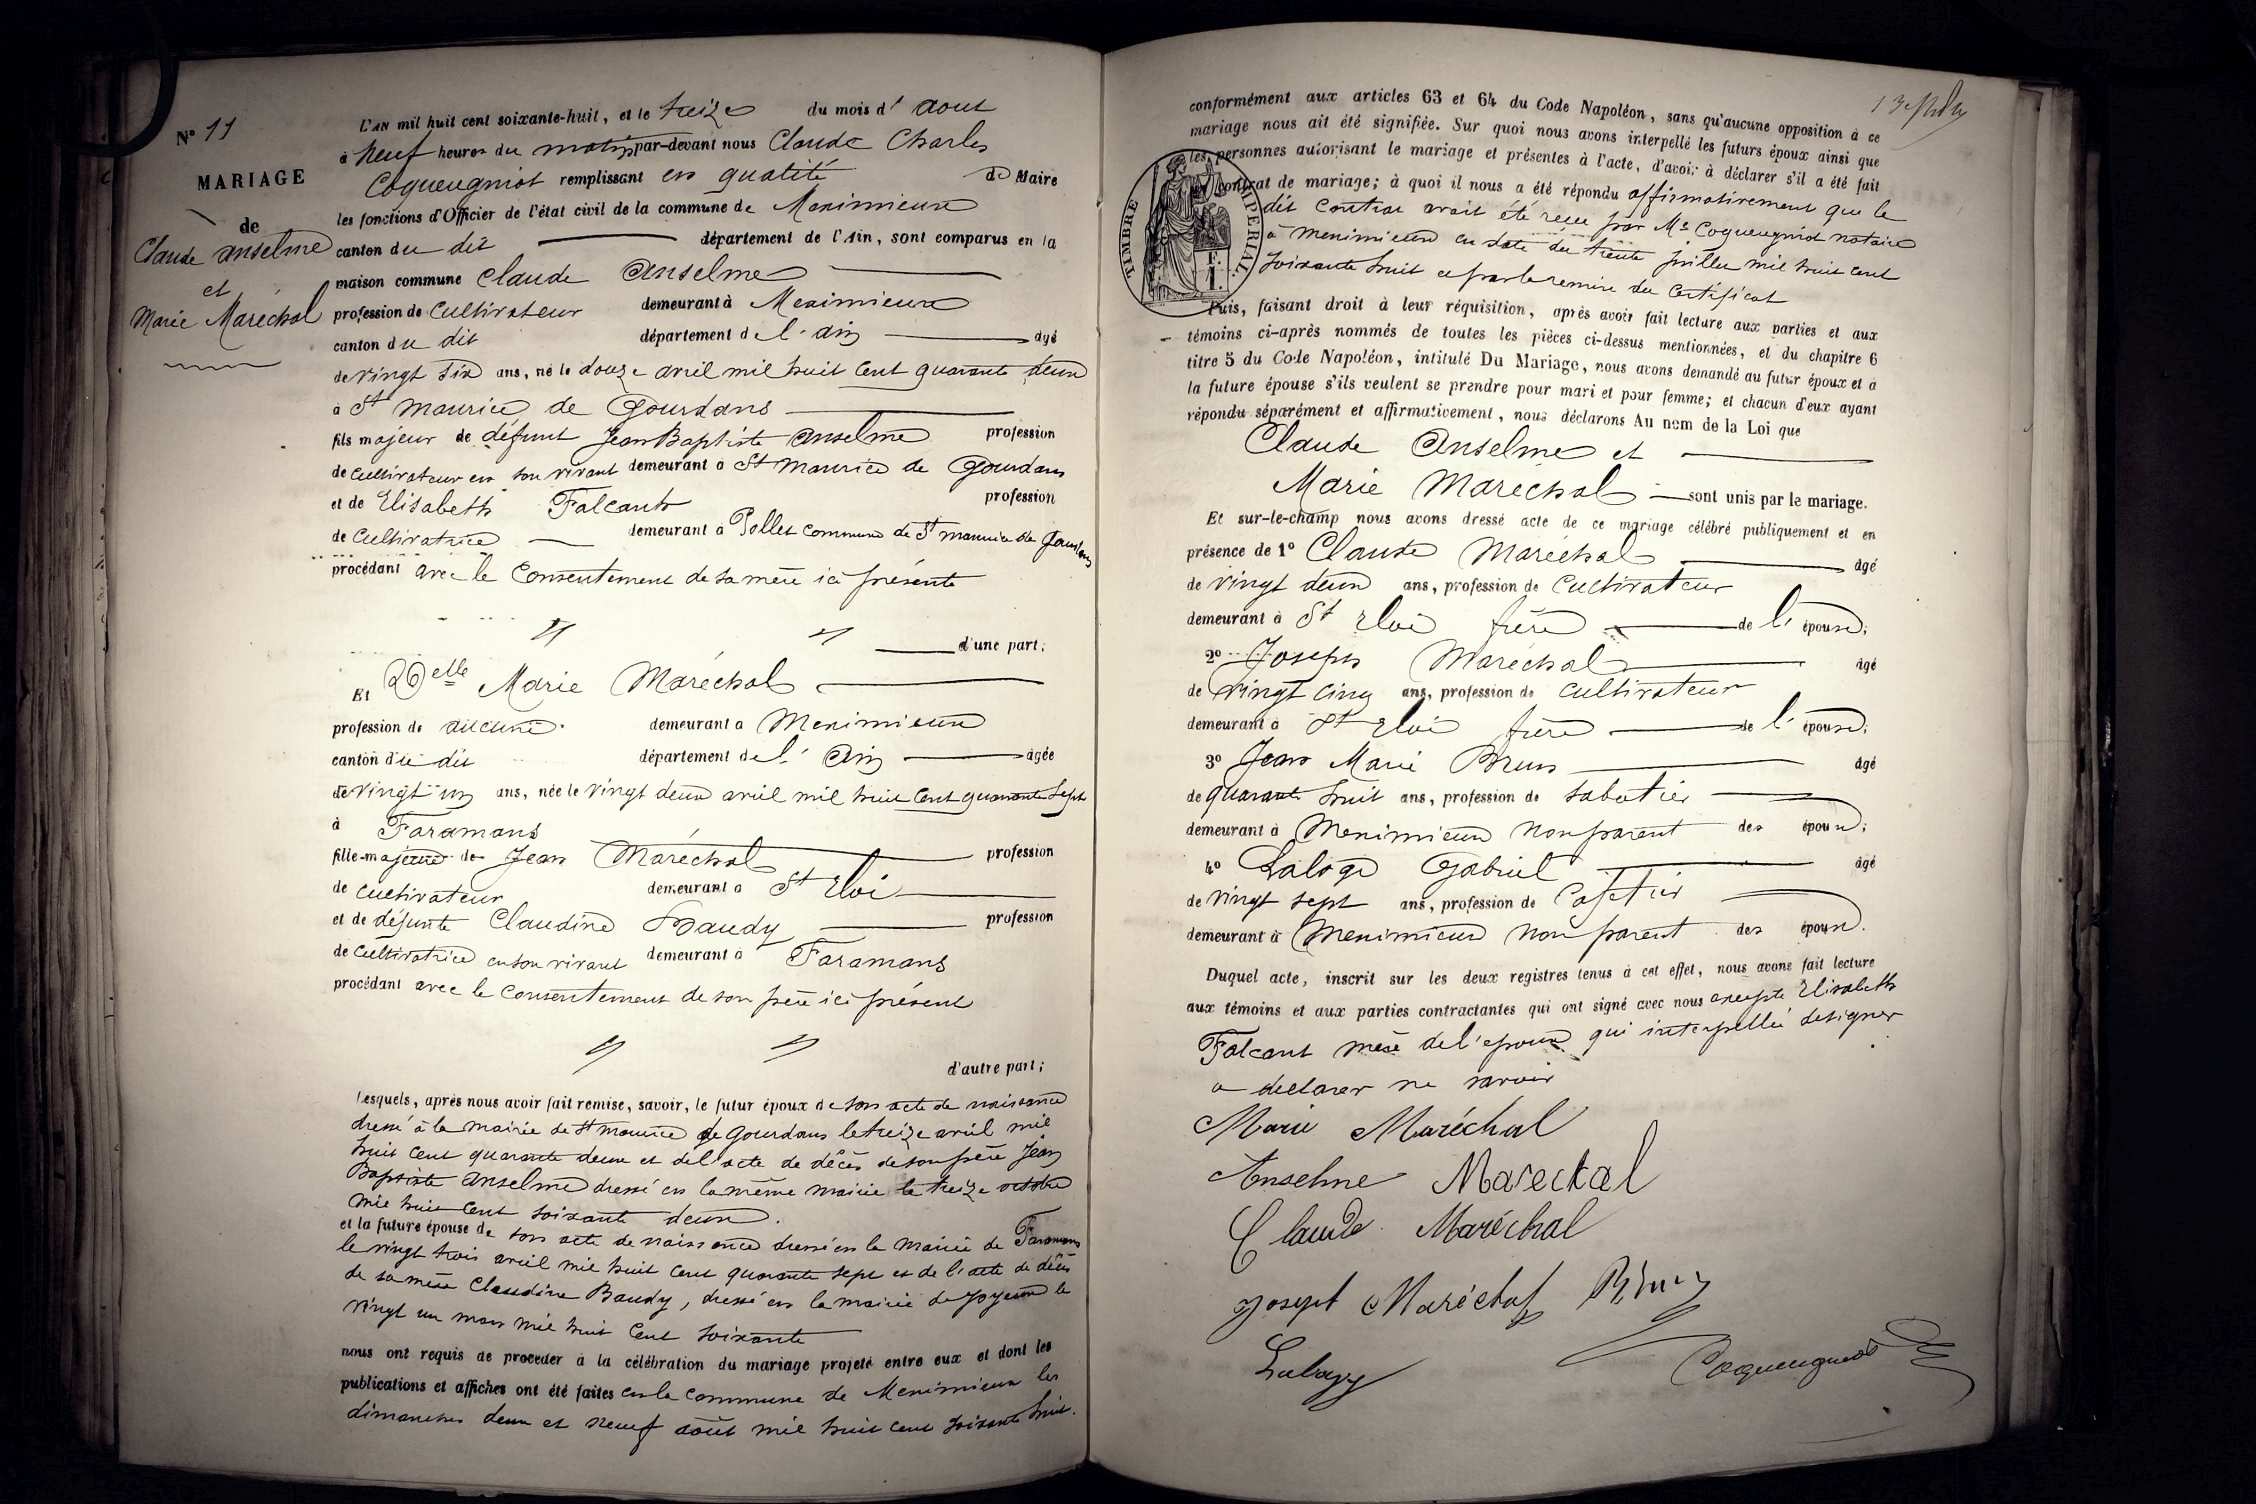 N° 11
MARIAGE
de
Claude anselme
et
Marie Maréchal
L'AN mil huit cent soixante-huit, et le treize du mois d' aout
à Neuf heures du matin par-devant nous Claude Charles
Coqueugniot remplissant en qualité de Maire
les fonctions d'Officier de l'état civil de la commune de Meximieux
canton du dit département de l'Ain, sont comparus en la
maison commune Claude Anselme
profession de Cultivateur demeurant à Meximieux
canton du dit département de l'ain âgé
de vingt six ans, né le douze avril mil huit cent quarante deux
à St maurice de Gourdans
fils majeur de défunt Jean Baptiste Anselme profession
de cultivateur en son vivant demeurant à St maurice de Gourdans
et de Elisabeth Falcant profession
de Cultivatrice demeurant à Pollet commune de St maurice de Gourdans
procédant avec le Consentement de sa mère ici présente
d'une part;
Et Delle Marie Maréchal
profession de aucune demeurant à Meximieux
canton du dit département de l' Ain âgée
de vingt un ans, née le vingt deux avril mil huit cent quarante sept
à Faramans
fille majeure de Jean Maréchal profession
de cultivateur demeurant à St Eloi
et de défunte Claudine Baudy profession
de Cultivatrice en son vivant demeurant à Faramans
procédant avec le Consentement de son père ici présent
d'autre part;
Lesquels, après nous avoir fait remise, savoir, le futur époux de son acte de naissance
dressé à la mairie de St maurice de Gourdans le treize avril mil
huit cent quarante deux et de l'acte de décès de son père Jean
Baptiste Anselme dressé en la même mairie le treize octobre
mil huit cent soixante deux.
et la future épouse de son acte de naissance dressé en la mairie de Faramans
le vingt trois avril mil huit cent quarante sept et de l'acte de décès
de sa mère Claudine Baudy, dressé en la mairie de Joyeux le
vingt un mars mil huit cent soixante
nous ont requis de procéder à la célébration du mariage projeté entre eux et dont les
publications et affiches ont été faites en la commune de Meximieux les
dimanches deux et neuf août mil huit cent soixante huit.
conformément aux articles 63 et 64 du Code Napoléon, sans qu'aucune opposition à ce
mariage nous ait été signifiée. Sur quoi nous avons interpellé les futurs époux ainsi que
les personnes autorisant le mariage et présentes à l'acte, d'avoir à déclarer s'il a été fait
contrat de mariage; à quoi il nous a été répondu affirmativement que le
dit contrat avait été reçu par Me Coqueugniot notaire
à meximieux en date du trente juillet mil huit cent
soixante huit et par la remise du certificat
TIMBRE IMPERIAL.
Puis, faisant droit à leur réquisition, après avoir fait lecture aux parties et aux
témoins ci-après nommés de toutes les pièces ci-dessus mentionnées, et du chapitre 6
titre 5 du Code Napoléon, intitulé Du Mariage, nous avons demandé au futur époux et à
la future épouse s'ils veulent se prendre pour mari et pour femme; et chacun d'eux ayant
répondu séparément et affirmativement, nous déclarons Au nom de la Loi que
Claude Anselme et
Marie Maréchal sont unis par le mariage.
Et sur-le-champ nous avons dressé acte de ce mariage célébré publiquement et en
présence de 1° Claude Maréchal âgé
de vingt deux ans, profession de Cultivateur
demeurant à St Eloi frère de l' épouse;
2° Joseph Maréchal âgé
de vingt cinq ans, profession de cultivateur
demeurant à St Eloi frère de l' épouse;
3° Jean Marie Brun âgé
de quarante huit ans, profession de sabotier
demeurant à Meximieux non parent des époux;
4° Laloge Gabriel âgé
de vingt sept ans, profession de Cafetier
demeurant à Meximieux non parent des époux.
Duquel acte, inscrit sur les deux registres tenus à cet effet, nous avons fait lecture
aux témoins et aux parties contractantes qui ont signé avec nous excepté Elisabeth
Falcant mère de l'époux qui interpellée de signer
a declarer ne savoir
Marie Maréchal
Anselme Marechal
Claude Maréchal
Joseph Maréchal Brun
Coqueugniot